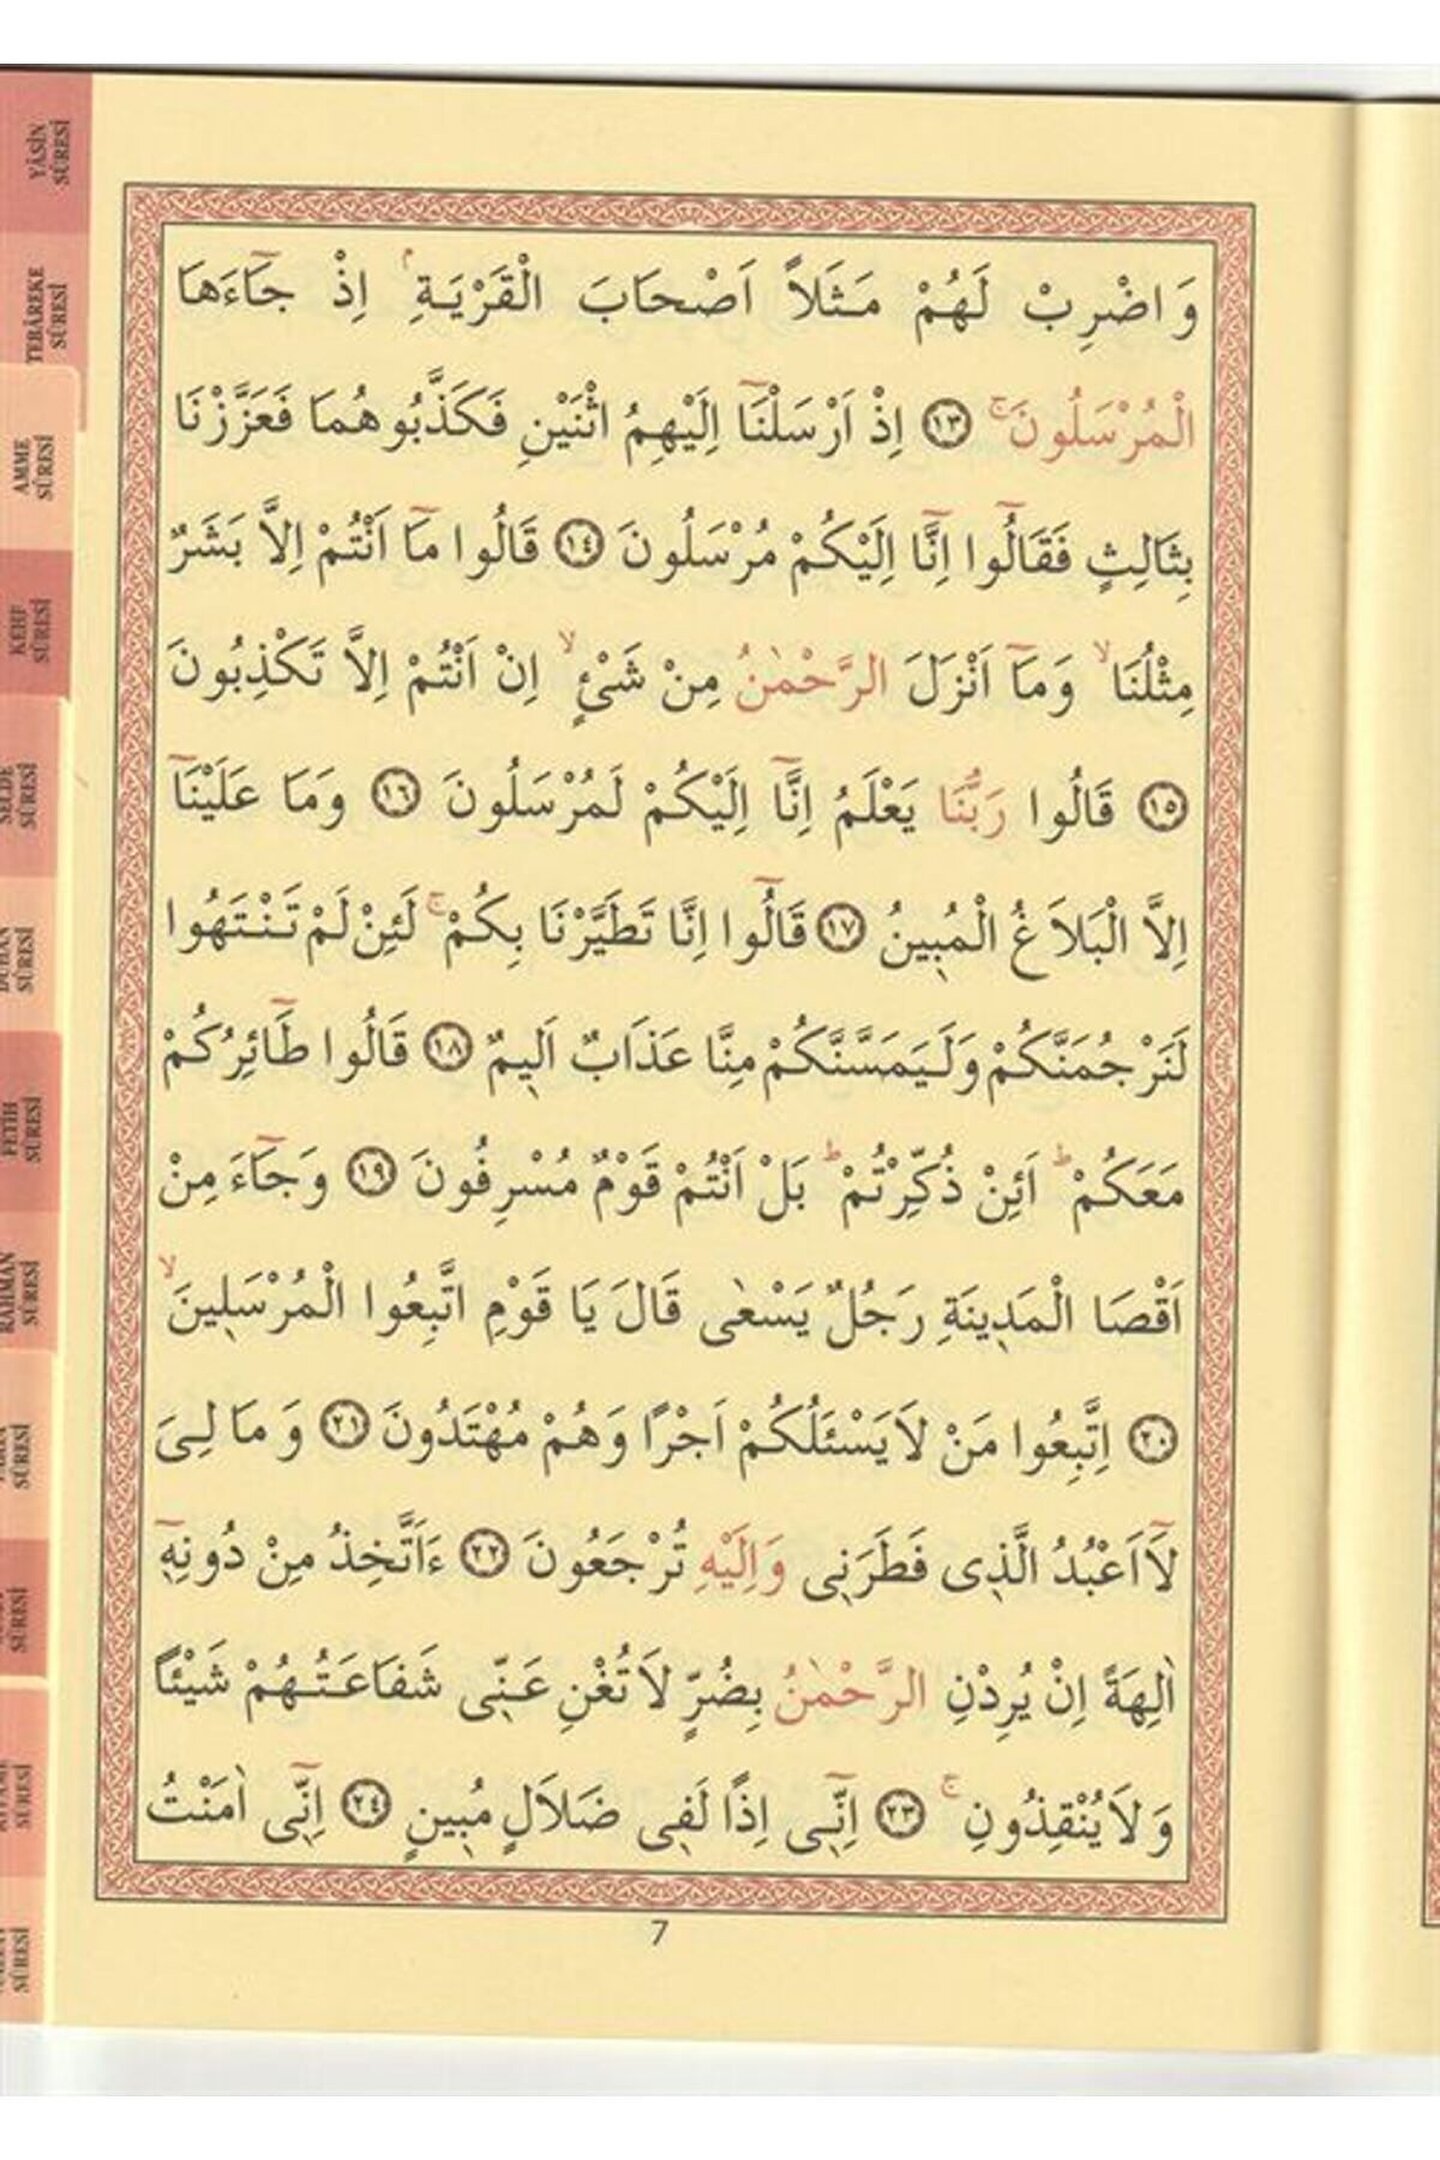 وَاضْرِبْ لَهُمْ مَثَلاً اَصْحَابَ الْقَرْيَةِۢ اِذْ جَٓاءَهَا
الْمُرْسَلُونَۚ ﴿١٣﴾ اِذْ اَرْسَلْنَٓا اِلَيْهِمُ اثْنَيْنِ فَكَذَّبُوهُمَا فَعَزَّزْنَا
بِثَالِثٍ فَقَالُٓوا اِنَّٓا اِلَيْكُمْ مُرْسَلُونَ ﴿١٤﴾ قَالُوا مَٓا اَنْتُمْ اِلاَّ بَشَرٌ
مِثْلُنَاۙ وَمَٓا اَنْزَلَ الرَّحْمٰنُ مِنْ شَىْءٍۙ اِنْ اَنْتُمْ اِلاَّ تَكْذِبُونَ
﴿١٥﴾ قَالُوا رَبُّنَا يَعْلَمُ اِنَّٓا اِلَيْكُمْ لَمُرْسَلُونَ ﴿١٦﴾ وَمَا عَلَيْنَٓا
اِلاَّ الْبَلاَغُ الْمُبٖينُ ﴿١٧﴾ قَالُٓوا اِنَّا تَطَيَّرْنَا بِكُمْۚ لَئِنْ لَمْ تَنْتَهُوا
لَنَرْجُمَنَّكُمْ وَلَيَمَسَّنَّكُمْ مِنَّا عَذَابٌ اَلٖيمٌ ﴿١٨﴾ قَالُوا طَٓائِرُكُمْ
مَعَكُمْؕ اَئِنْ ذُكِّرْتُمْؕ بَلْ اَنْتُمْ قَوْمٌ مُسْرِفُونَ ﴿١٩﴾ وَجَٓاءَ مِنْ
اَقْصَا الْمَدٖينَةِ رَجُلٌ يَسْعٰى قَالَ يَا قَوْمِ اتَّبِعُوا الْمُرْسَلٖينَۙ
﴿٢٠﴾ اِتَّبِعُوا مَنْ لاَيَسْئَلُكُمْ اَجْرًا وَهُمْ مُهْتَدُونَ ﴿٢١﴾ وَمَا لِىَ
لَٓااَعْبُدُ الَّذٖى فَطَرَنٖى وَاِلَيْهِ تُرْجَعُونَ ﴿٢٢﴾ ءَاَتَّخِذُ مِنْ دُونِهٖٓ
اٰلِهَةً اِنْ يُرِدْنِ الرَّحْمٰنُ بِضُرٍّ لاَتُغْنِ عَنّٖى شَفَاعَتُهُمْ شَيْئًا
وَلاَيُنْقِذُونِۚ ﴿٢٣﴾ اِنّٖٓى اِذًا لَفٖى ضَلاَلٍ مُبٖينٍ ﴿٢٤﴾ اِنّٖٓى اٰمَنْتُ
7
YÂSİN
SÛRESİ
TEBÂREKE
SÛRESİ
AMME
SÛRESİ
KEHF
SÛRESİ
SECDE
SÛRESİ
DUHÂN
SÛRESİ
FETİH
SÛRESİ
RAHMÂN
SÛRESİ
SÛRESİ
SÛRESİ
SÛRESİ
SÛRESİ